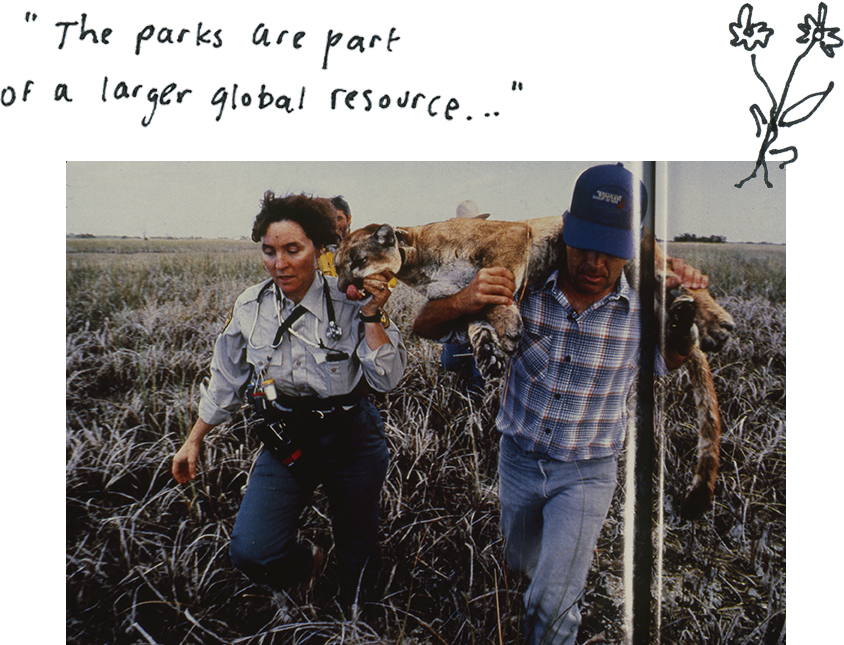 "The parks are part
of a larger global resource..."